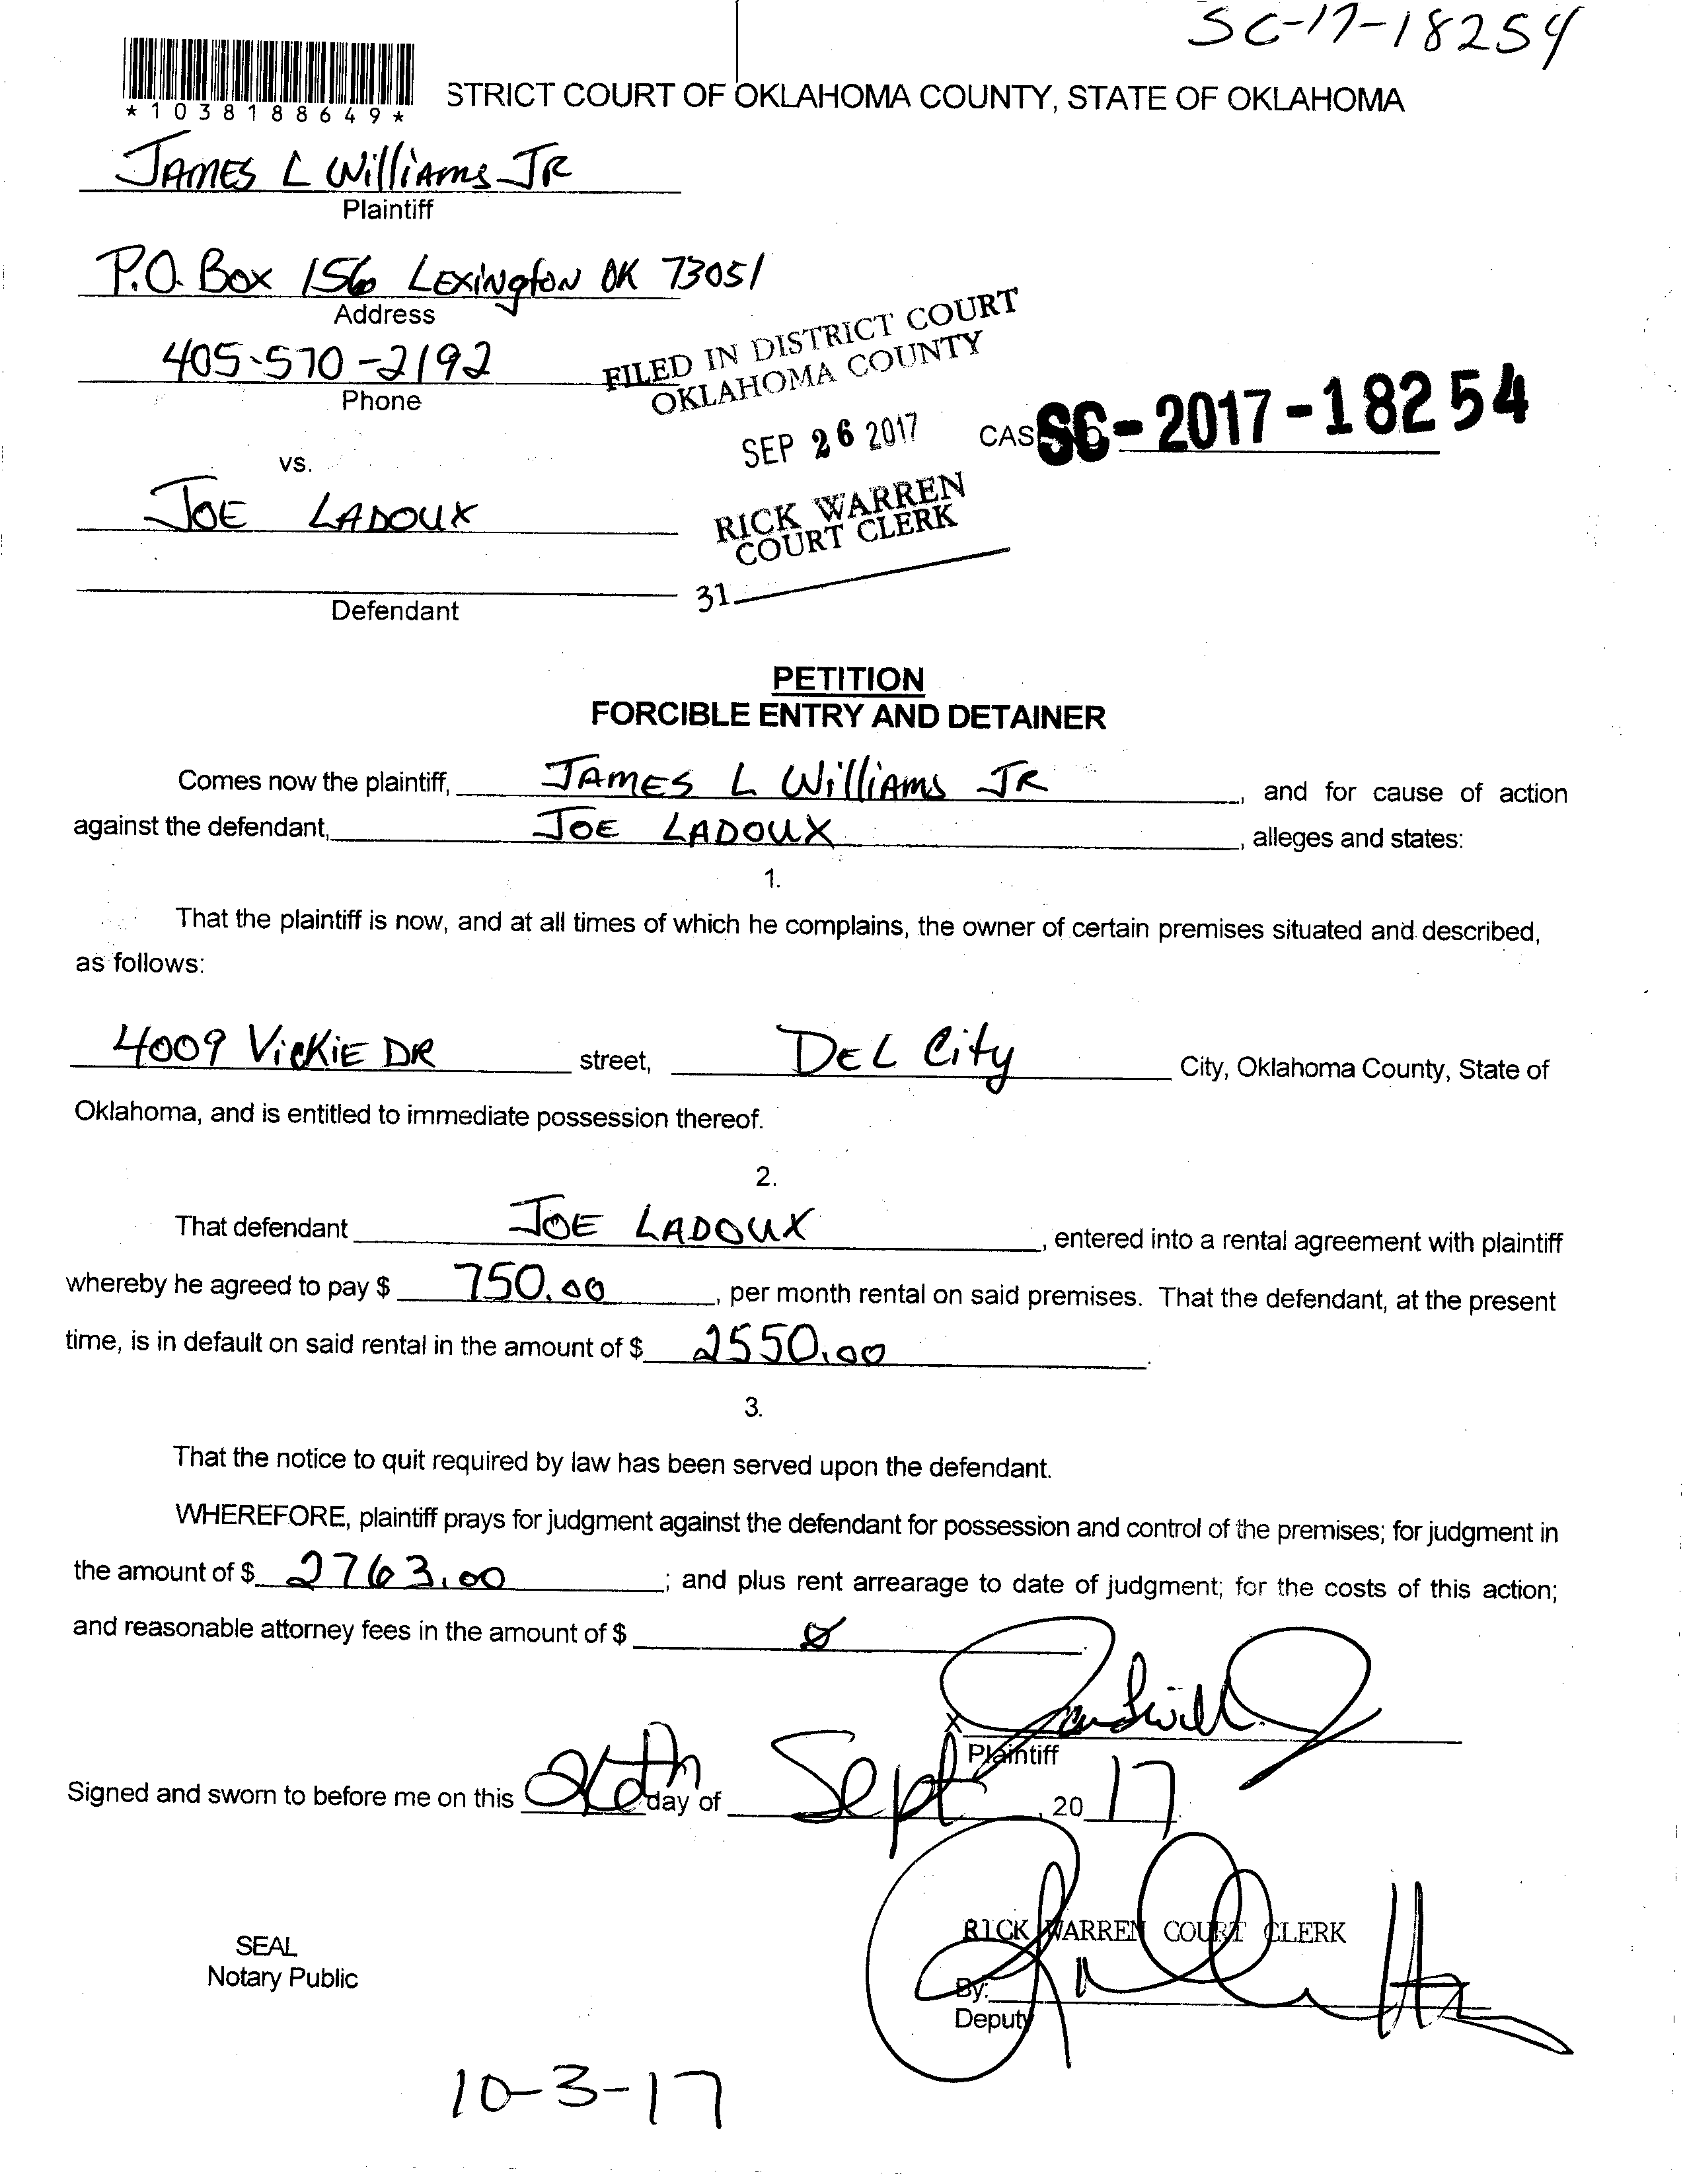 SC-17-18254
*1038188649*
STRICT COURT OF OKLAHOMA COUNTY, STATE OF OKLAHOMA
JAMES L WilliAms JR
Plaintiff
P.O. Box 156 LexiNgtoN OK 73051
Address
405-570-2192
Phone
FILED IN DISTRICT COURT
OKLAHOMA COUNTY
SEP 26 2017
CAS SC-2017-18254
vs.
RICK WARREN
COURT CLERK
JOE LADOUX
31
Defendant
PETITION
FORCIBLE ENTRY AND DETAINER
Comes now the plaintiff, JAMES L WilliAms JR, and for cause of action
against the defendant, JOE LADOUX, alleges and states:
1.
That the plaintiff is now, and at all times of which he complains, the owner of certain premises situated and described,
as follows:
4009 VicKiE DR street, DEL City City, Oklahoma County, State of
Oklahoma, and is entitled to immediate possession thereof.
2.
That defendant JOE LADOUX, entered into a rental agreement with plaintiff
whereby he agreed to pay $ 750.00, per month rental on said premises. That the defendant, at the present
time, is in default on said rental in the amount of $ 2550.00.
3.
That the notice to quit required by law has been served upon the defendant.
WHEREFORE, plaintiff prays for judgment against the defendant for possession and control of the premises; for judgment in
the amount of $ 2763.00; and plus rent arrearage to date of judgment; for the costs of this action;
and reasonable attorney fees in the amount of $ Ø.
X
Plaintiff
Signed and sworn to before me on this 26th day of Sept, 20 17.
RICK WARREN COURT CLERK
SEAL
Notary Public
By:
Deputy
10-3-17